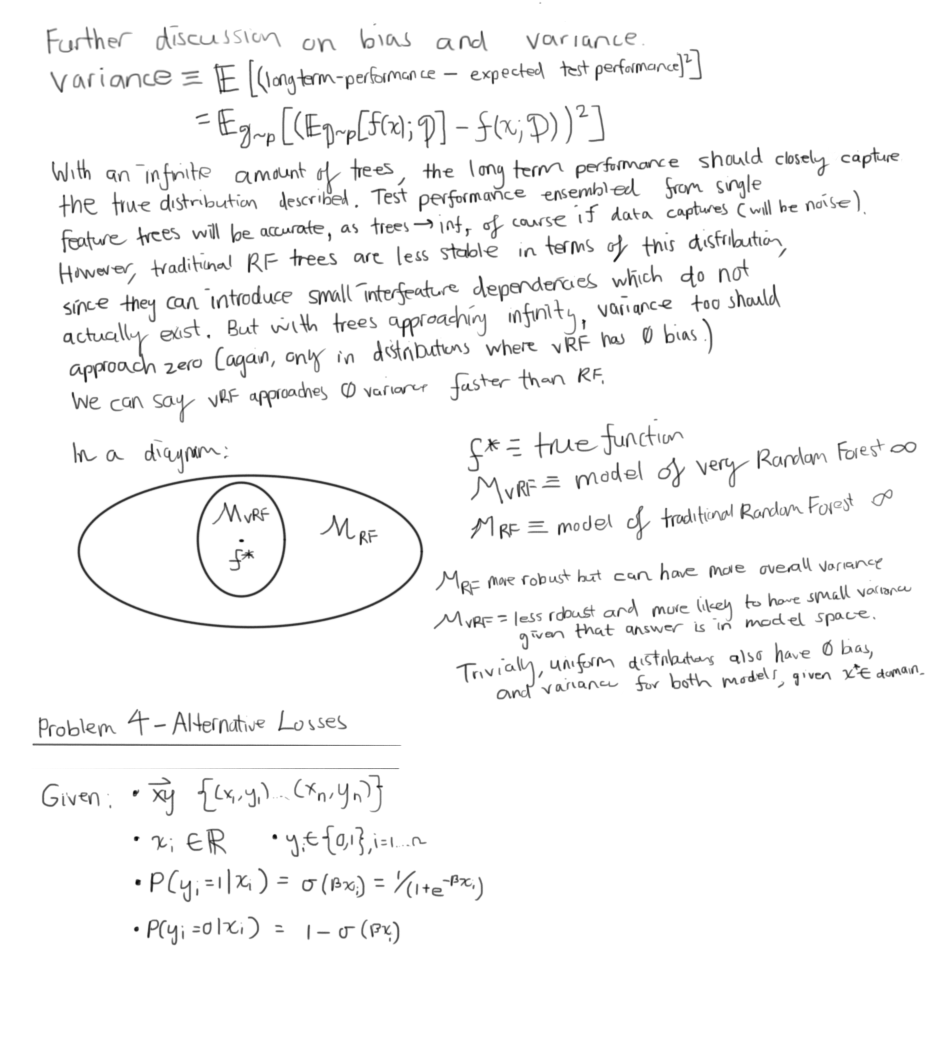 Further discussion on bias and variance.
Variance ≡ 𝔼 [(long term-performance − expected test performance)²]
= 𝔼_{g~p} [(𝔼_{D~p}[f(x); D] − f(x; D))²]
With an infinite amount of trees, the long term performance should closely capture
the true distribution described. Test performance ensembled from single
feature trees will be accurate, as trees → inf, of course if data captures (will be noise).
However, traditional RF trees are less stable in terms of this distribution,
since they can introduce small interfeature dependencies which do not
actually exist. But with trees approaching infinity, variance too should
approach zero (again, only in distributions where vRF has 0 bias.)
We can say vRF approaches 0 variance faster than RF.
In a diagram:
M_vRF
f*
M_RF
f* ≡ true function
M_vRF ≡ model of very Random Forest ∞
M_RF ≡ model of traditional Random Forest ∞
M_RF more robust but can have more overall variance
M_vRF = less robust and more likely to have small variance
given that answer is in model space.
Trivially, uniform distributions also have 0 bias,
and variance for both models, given x* ∈ domain.
Problem 4 - Alternative Losses
Given: • xy⃗ {(x₁,y₁)...(xₙ,yₙ)}
• xᵢ ∈ ℝ • yᵢ ∈ {0,1}, i=1...n
• P(yᵢ=1|xᵢ) = σ(βxᵢ) = 1/(1+e^{-βxᵢ})
• P(yᵢ=0|xᵢ) = 1 − σ(βxᵢ)